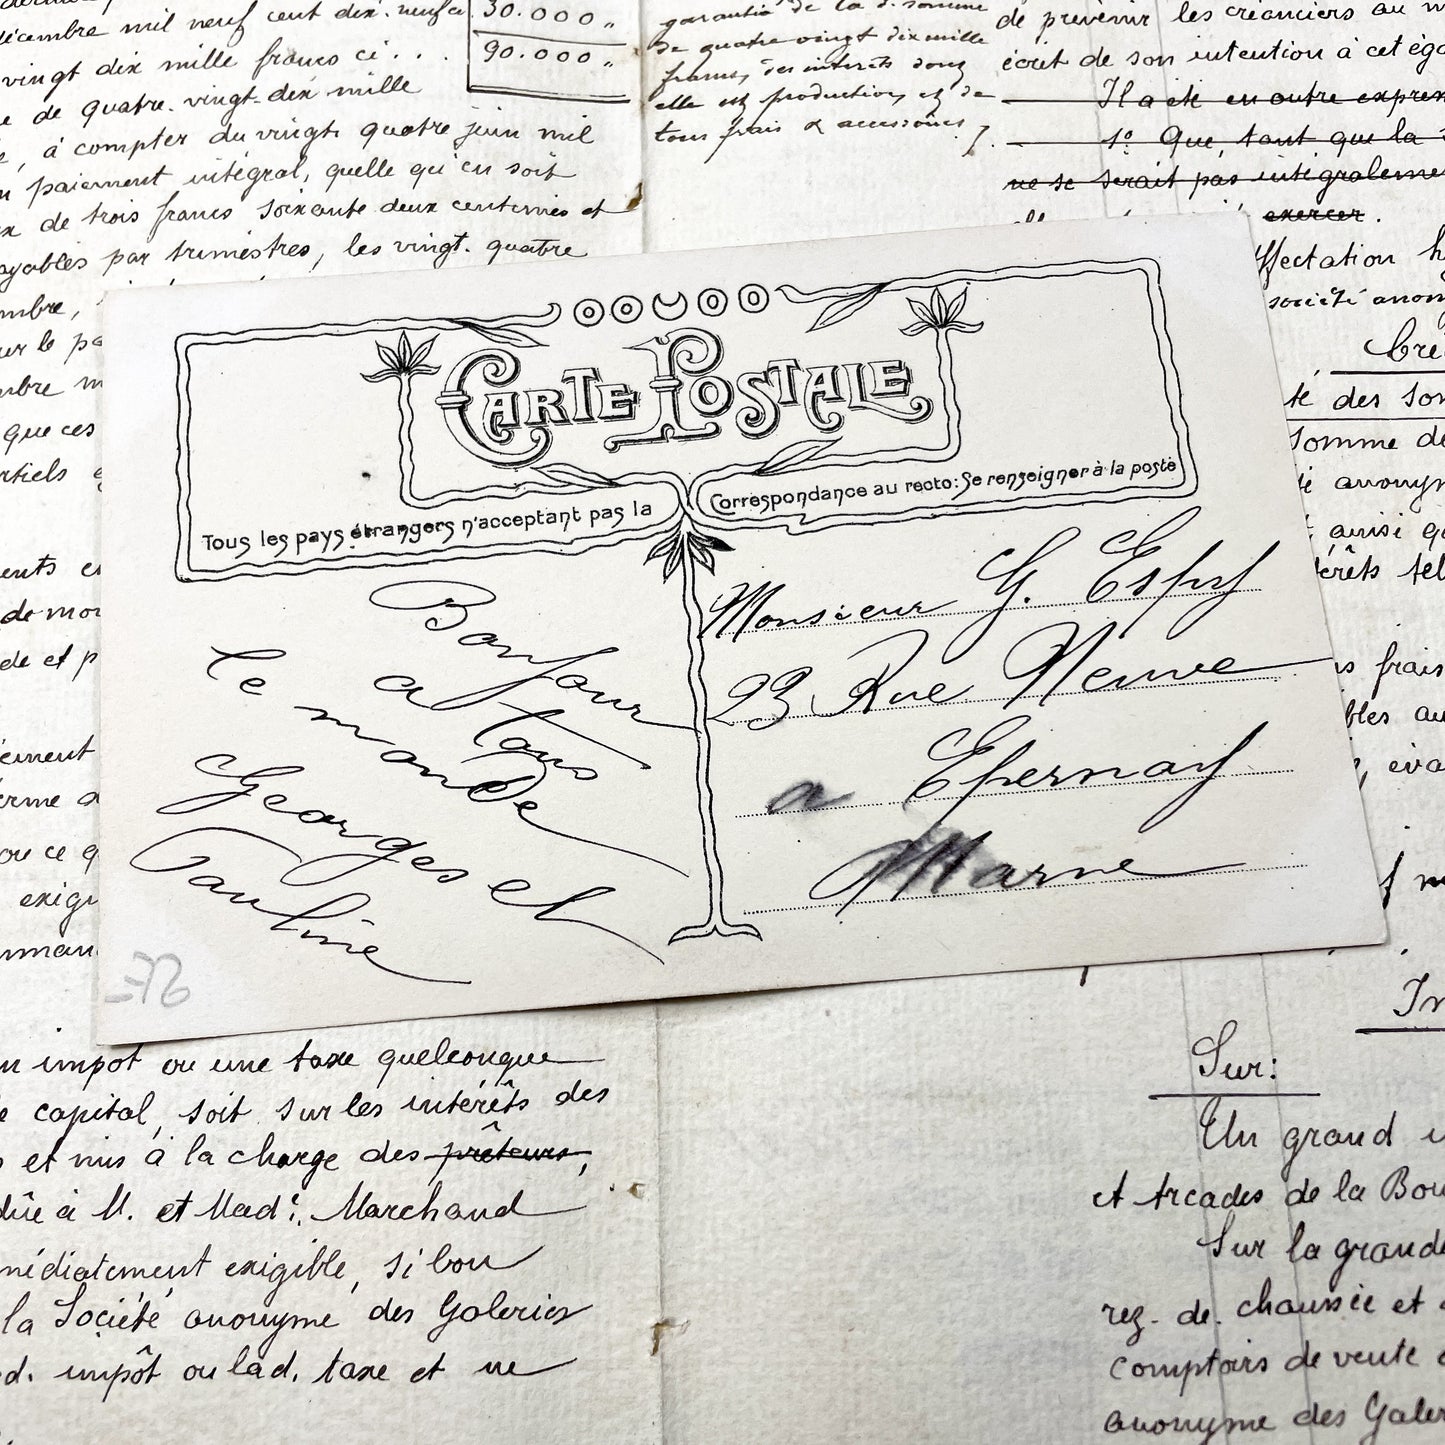 décembre mil neuf cent dix. neuf ci
30.000 "
90.000 "
vingt dix mille francs ci . . .
de quatre. vingt-dix mille
, à compter du vingt quatre juin mil
paiement intégral, quelle qu'en soit
de trois francs soixante deux centimes et
payables par trimestres, les vingt. quatre
mbre,
que ces
garantie de la d. somme
de quatre vingt dix mille
francs, des intérêts dont
elle est productive, et de
tous frais & accessoires,
de prévenir les créanciers au m
écrit de son intention à cet éga
Il a été en outre expres
1º Que, tant que la
ne se serait pas intégraleme
exercer.
ffectation h
société anon
Cré
té des som
somme de
anonym
ainsi qu
érêts tel
frais
bles au
, éva
CARTE POSTALE
Tous les pays étrangers n'acceptant pas la
Correspondance au recto: Se renseigner à la poste
Bonjour
a tous
le monde
Georges et
Pauline
Monsieur G. Espy
23 Rue Neuve
a Epernay
Marne
ents
de mo
de et p
ement
erme
ou ce q
exig
mman
impôt ou une taxe quelconque
capital, soit sur les intérêts des
et mis à la charge des prêteurs,
due à M. et Madᵉ. Marchand
médiatement exigible, si bon
la Société anonyme des Galeries
d. impôt ou lad. taxe et ne
Sur:
Un grand
et Arcades de la Bou
Sur la grande
rez. de. chaussée et
comptoirs de vente
anonyme des Galer